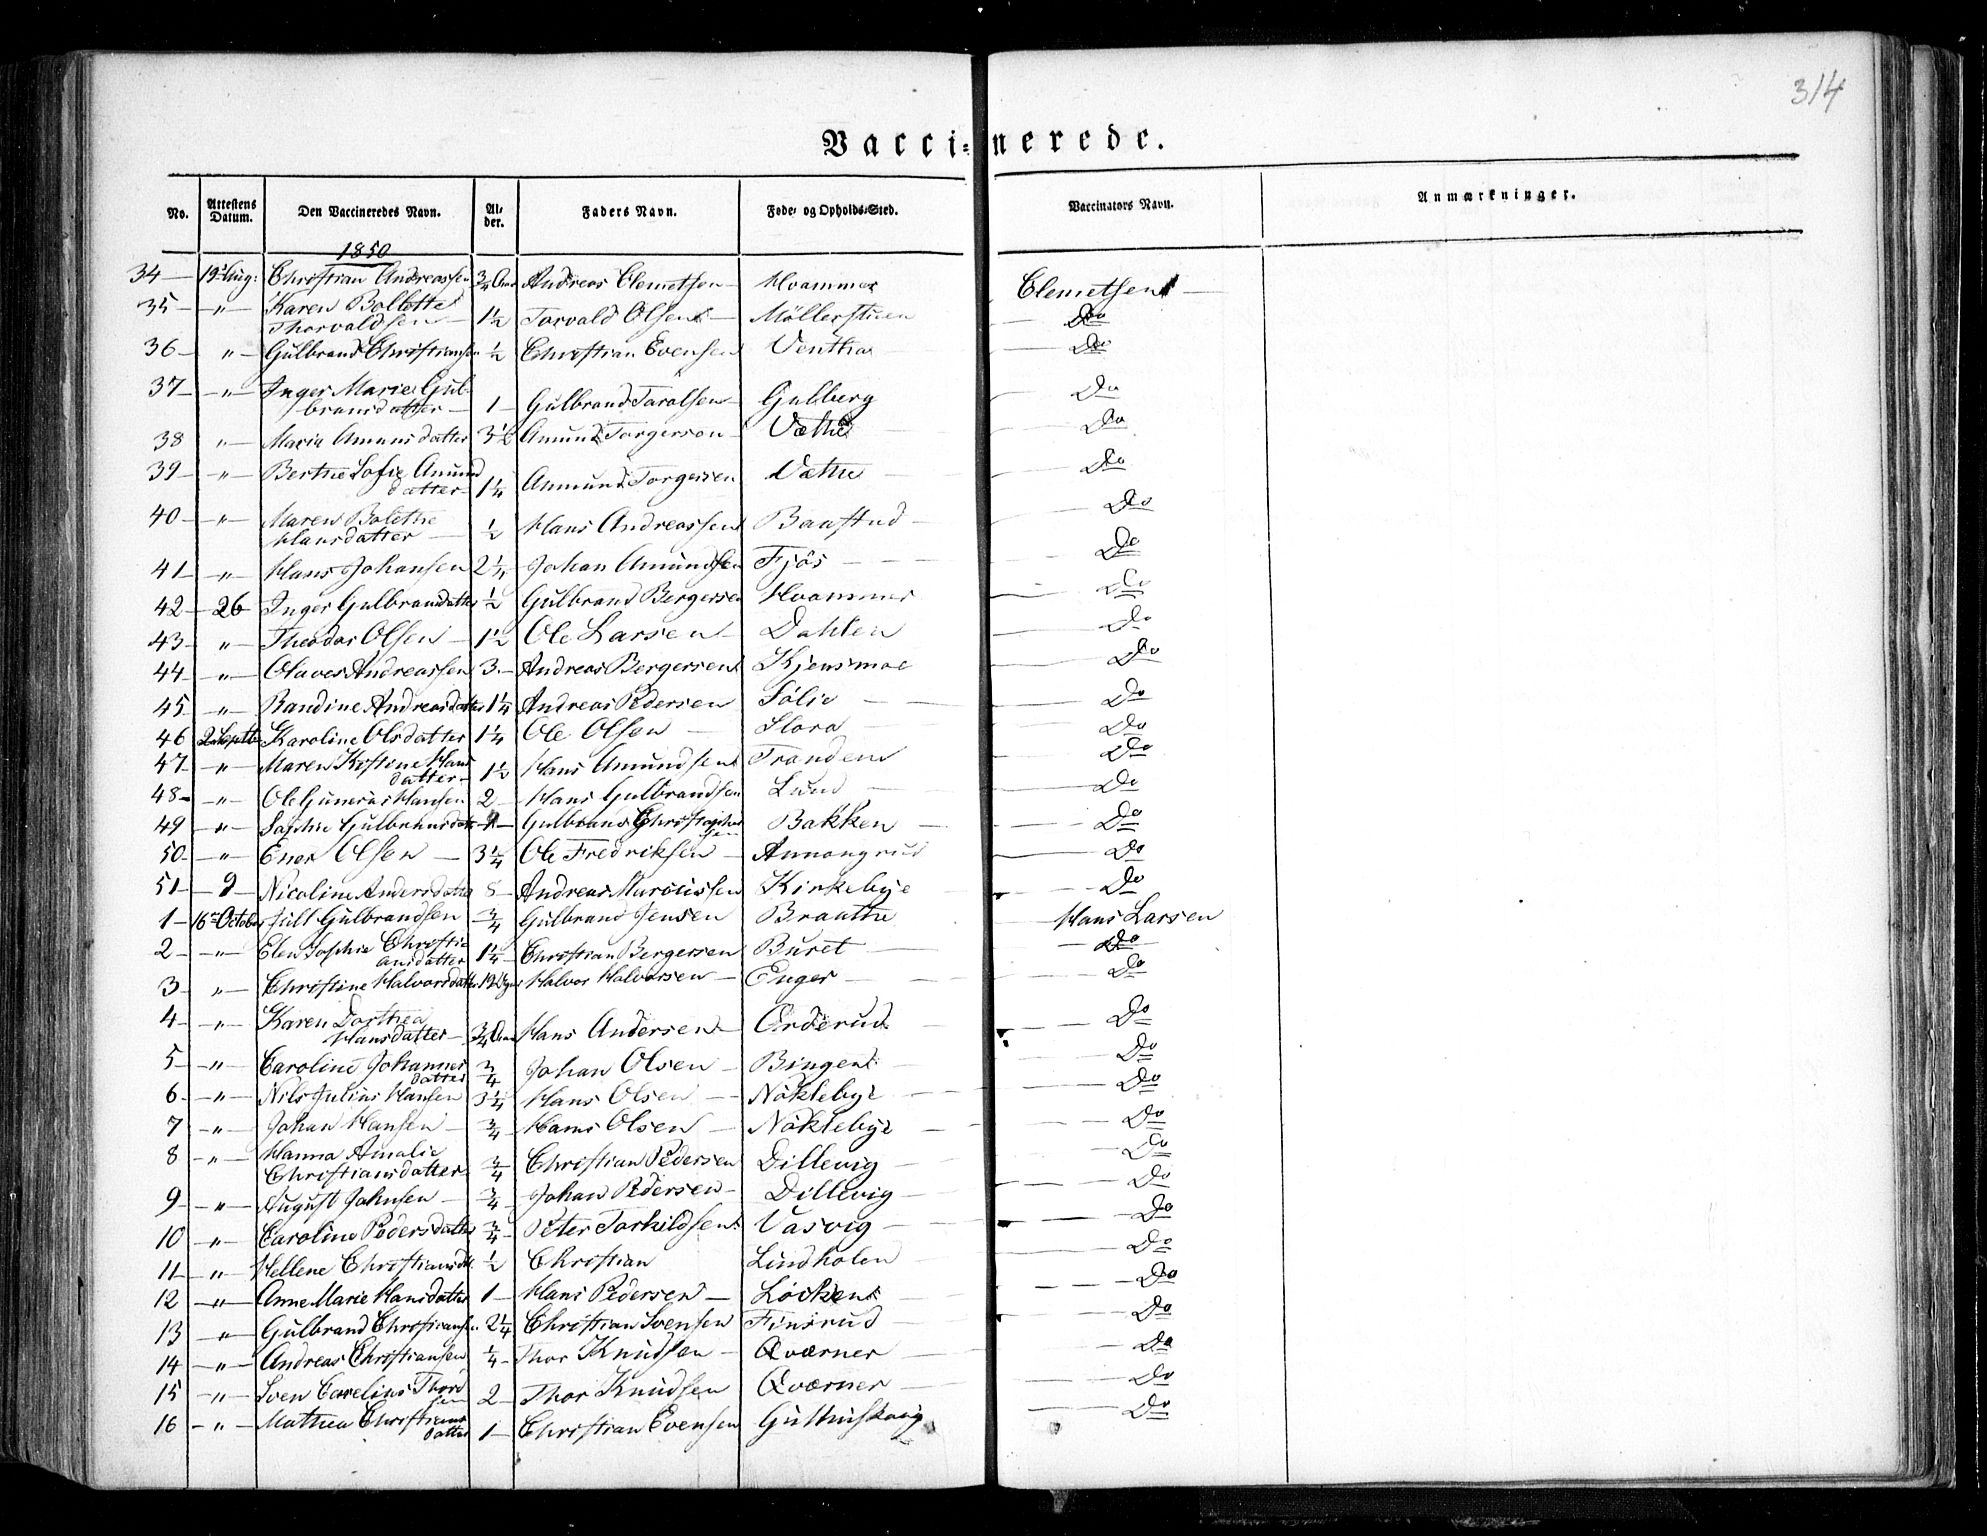 314
Vacci-nerede.
No. Attestens Datum. Den Vaccineredes Navn. Al-der. Faders Navn. Føde- og Opholds-Sted. Vaccinators Navn. Anmærkninger.
1850
34 — 19 Aug: Christian Andreassen 3/4 Aar Andreas Clemetsen — Hvammer Clemetsen —
35 — " — Karen Bolette Thorvaldsen — 1 1/2 Torvald Olsen — Möllerstuen — Do
36 — " — Gulbrand Christiansen 1/2 Christian Evensen Ventha — Do
37 — " — Inger Marie Gulbransdatter — 1 — Gulbrand Taralsen Gulberg — Do
38 " — Maria Amunsdatter 3 1/2 Amund Torgersen — Væthe — Do
39 — " — Berthe Sofie Amunddatter — 1 1/4 Amund Torgersen Væthe — Do
40 — " — Maren Bolethe Hansdatter — 1/2 Hans Andreassen Baastad — Do
41 — " — Hans Johansen 2 1/4 Johan Amundsen Fjös — Do
42 — 26 Inger Gulbransdatter 1/2 Gulbrand Bergersen Hvammer — Do
43 — " — Theodor Olsen — 1 1/2 Ole Larsen — Dahlen — Do
44 — " — Olaves Andreassen 3 — Andreas Bergersen Kjensmoe — Do
45 — " — Randine Andreasdatter 1 1/4 Andreas Pedersen Sölie — Do
46 2 Septbr Karoline Olsdatter 1 1/4 Ole Olsen — Slora — Do
47 — " — Maren Kistine Hansdatter — 1 1/2 Hans Amundsen Trandem — Do
48 — " — Ole Gunerius Hansen 2 — Hans Gulbrandsen Lund — Do
49 — " — Sophie Gulbransdatter — Gulbrand Christophersen Bakken — Do
50 — " — Enor Olsen — 3 1/4 Ole Fredriksen — Annangrud — Do
51 — 9 — Nicoline Andersdatter 8 — Andreas Marcussen Kirkebye — Do
1 — 16 October Jull Gulbrandsen 3/4 Gulbrand Jensen Braathe — Hans Larsen
2 — " — Elen Sophie Christiansdatter 1 1/4 Christian Bergersen Buret — Do
3 — " — Christine Halvorsdatter 12 Uger Halvor Halvorsen — Enger — Do
4 — " — Karen Dorthea Hansdatter — 3/4 Aar Hans Andersen — Orderud — Do
5 — " — Caroline Johannesdatter 3/4 Johan Olsen — Bingen — Do
6 — " — Nils Julius Hansen 3 1/4 Hans Olsen — Nöklebye — Do
7 — " — Johan Hansen — 3/4 Hans Olsen — Nöklebye — Do
8 — " — Hanna Amalie Christiansdatter 3/4 Christian Pedersen Dillevig — Do
9 — " — August Johnsen — 3/4 Johan Pedersen — Dillevig — Do
10 — " — Caroline Pedersdatter 3/4 Peter Torkildsen Vasvig — Do
11 — " — Hellene Christiansdtr. 1/2 Christian Lindholen — Do
12 — " — Anne Marie Hansdatter 1 — Hans Pedersen — Löcken — Do
13 — " — Gulbrand Christiansen 2 1/4 Christian Svensen Finsrud — Do
14 — " — Andreas Christiansen 1/4 Thor Knudsen — Qværner — Do
15 — " — Sven Carelius Thorsen 2 — Thor Knudsen Qværner — Do
16 — " — Mathea Christiansdatter 1 — Christian Evensen — Do